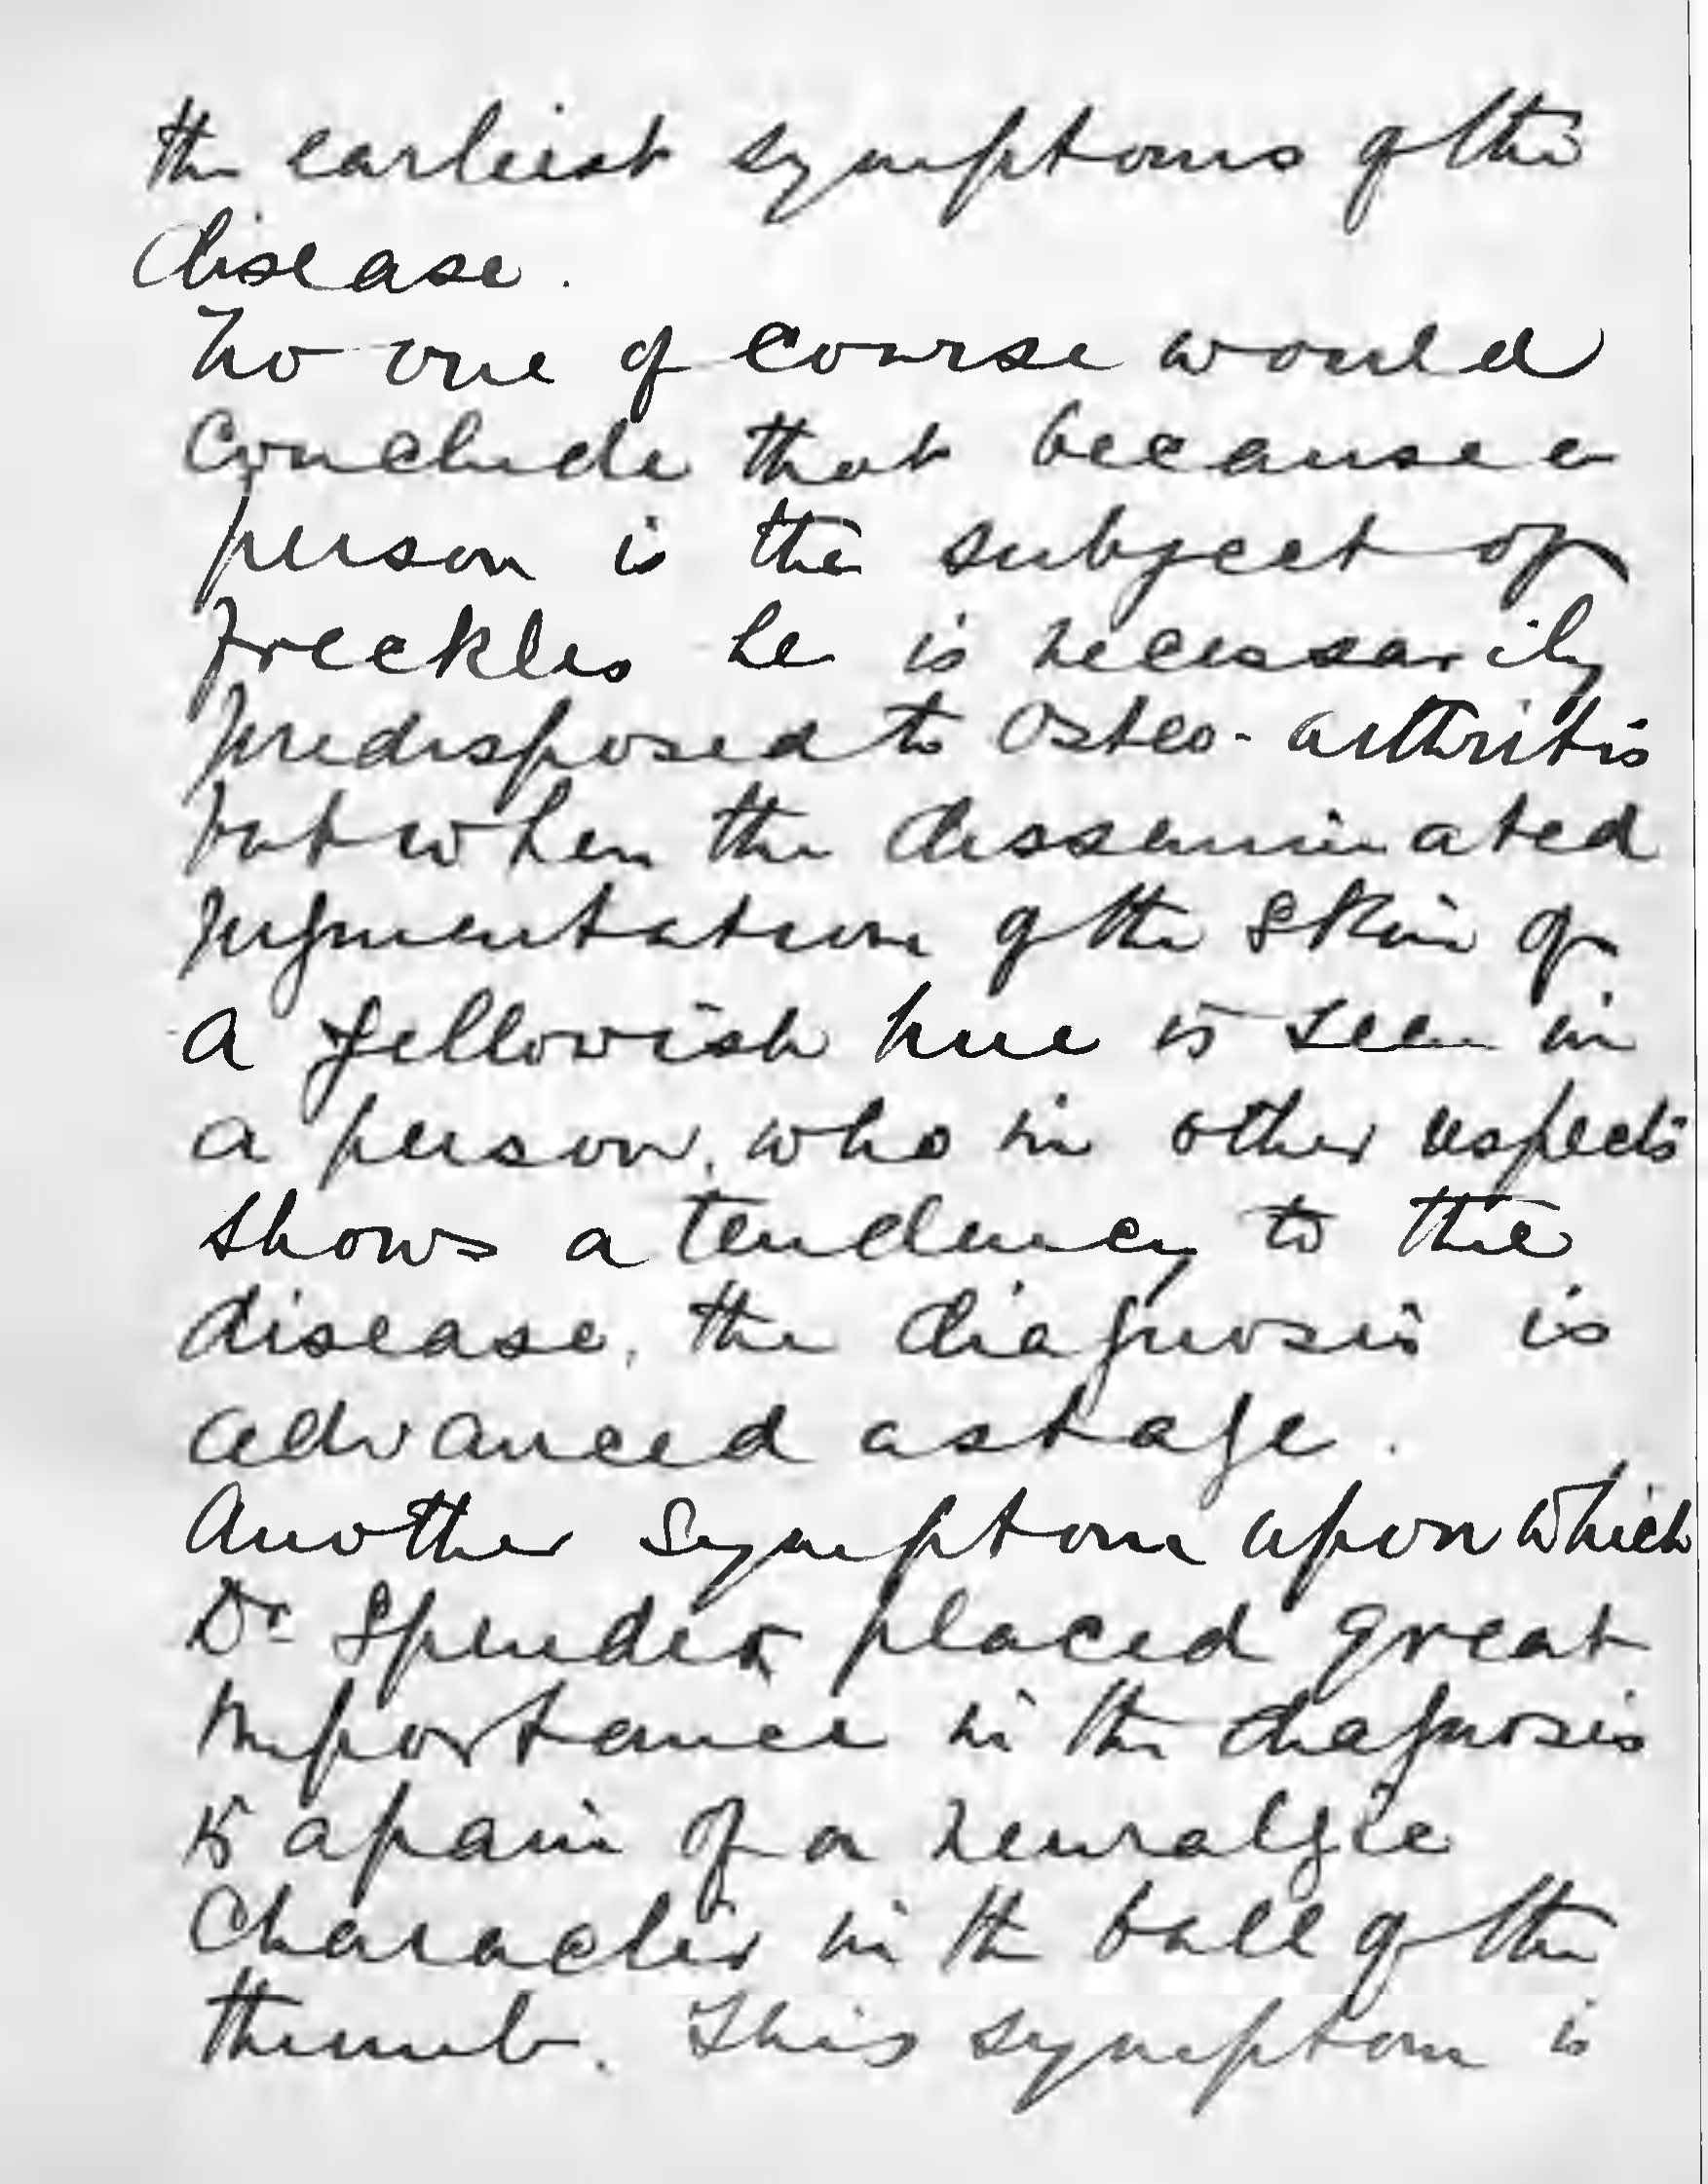 the earliest symptoms of the
disease.
No one of course would
conclude that because a
person is the subject of
freckles he is necessarily
predisposed to Osteo-arthritis
but when the disseminated
pigmentation of the skin of
a yellowish hue is seen in
a person, who in other respects
shows a tendency to the
disease, the diagnosis is
advanced a stage.
Another symptom upon which
Dr Spender placed great
importance in the diagnosis
is a pain of a neuralgic
character in the ball of the
thumb. This symptom is